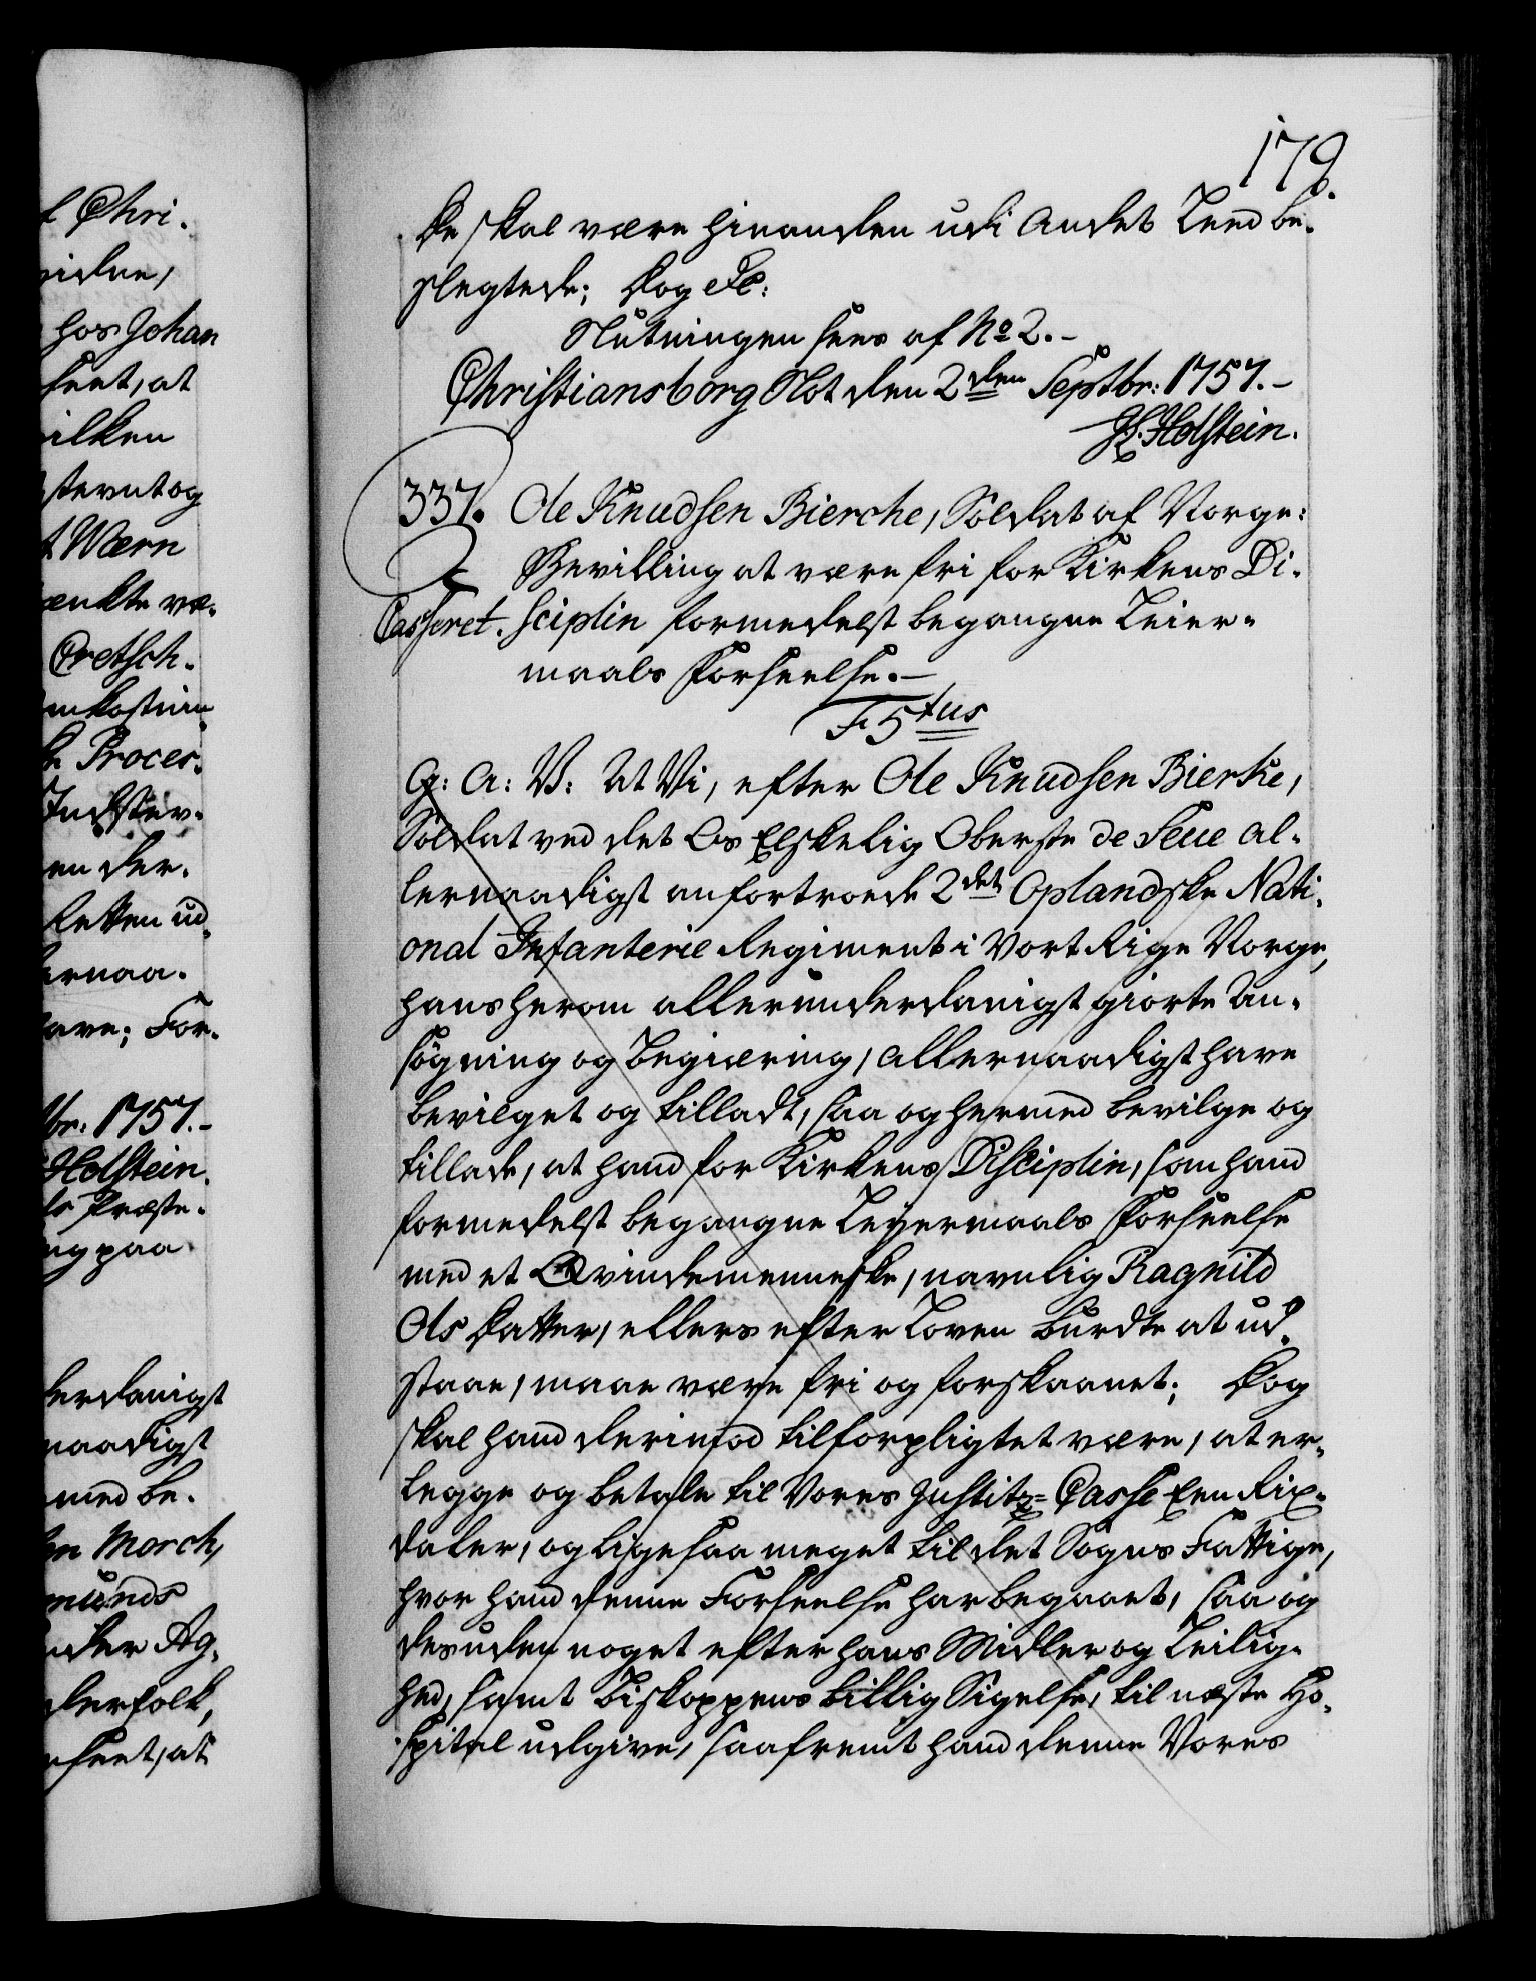 179.
De skal være hinanden udi Andet Leed be-
slegtede; Dog etc:
Slutningen sees af No 2.-
Christiansborg Slot den 2den Septbr: 1757.-
JL. Holstein.
337. Ole Knudsen Bierche, Soldat af Norge:
Bevilling at være fri for Kirkens Di-
Casseret. sciplin formedelst begangne Leier-
maals Forseelse.-
F 5tus
G: A: V: At Vi, efter Ole Knudsen Bierke,
Soldat ved det Os Elskelig Oberste de Seue al-
lernaadigst anfortroede 2det Oplandske Nati-
onal Infanterie Regiment i Vort Rige Norge,
hans herom allerunderdanigst giorte An-
søgning og Begiæring, Allernaadigst have
bevilget og tilladt, saa og hermed bevilge og
tillade, at hand for Kirkens Disciplin, som hand
formedelst begangne Leyermaals Forseelse
med et Qvindemenneske, navnlig Ragnild
Ols Datter, ellers efter Loven burdte at ud-
staae, maae være fri og forskaanet; Dog
skal hand derimod tilforpligtet være, at er-
legge og betale til Vores Justitz-Casse Een Rix-
daler, og ligesaa meget til det Sogns Fattige,
hvor hand denne Forseelse har begaaet, saa og
desuden noget efter hans Midler og Leilig-
hed, samt Biskoppens billig Sigelse, til næste Ho-
spital udgive, saafremt hand denne Vores
f Chri-
vidne,
hos Johan
seet, at
hvilken
stevnt og
t Wærn
enkte væ-
Cretsch-
mkostnin-
k Proces.
Indstev-
en der-
Retten ud-
ernaa-
have; For-
tbr: 1757.-
Holstein.
ls Præste-
ng paa
derdanigst
naadigst
med be-
en Morch,
munds
nder Ag-
derfolk,
seet, at